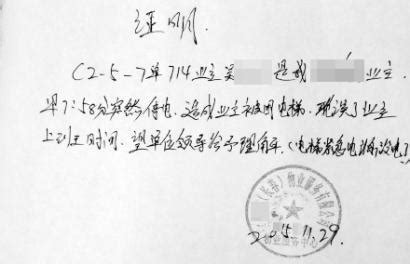 证明.
C2-5-7单714业主吴 是我 业主.
早7:58分突然停电.造成业主被困电梯.耽误了业主
上班时间.望单位领导给予理解.(电梯紧急电将没电了
(长春)物业服务有限公司
2015.11.29.